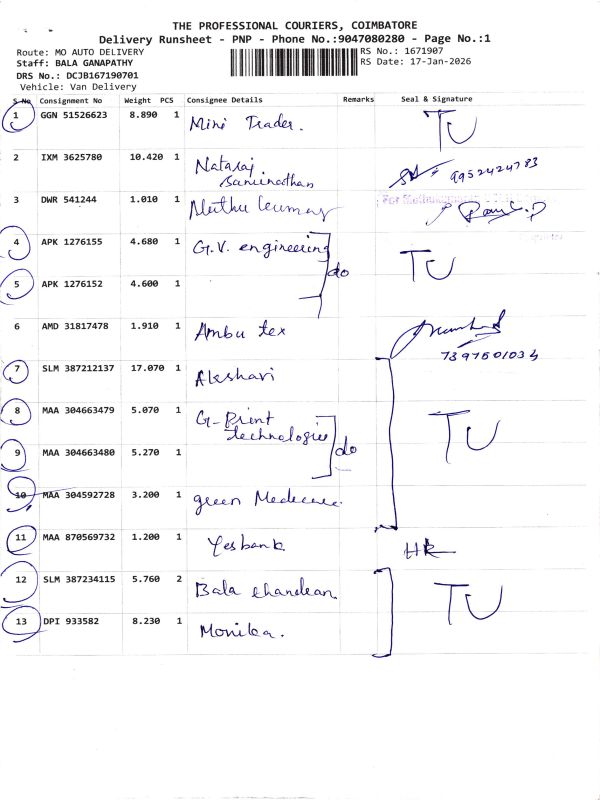 THE PROFESSIONAL COURIERS, COIMBATORE
Delivery Runsheet - PNP - Phone No.:9047080280 - Page No.:1
Route: MO AUTO DELIVERY RS No.: 1671907
Staff: BALA GANAPATHY RS Date: 17-Jan-2026
DRS No.: DCJB167190701
Vehicle: Van Delivery
S No Consignment No Weight PCS Consignee Details Remarks Seal & Signature
1 GGN 51526623 8.890 1 Mini Trader. TU
2 IXM 3625780 10.420 1 Nataraj 9952424783
3 DWR 541244 1.010 1 Muthu kumar
4 APK 1276155 4.680 1 G.V. engineering do TU
5 APK 1276152 4.600 1
6 AMD 31817478 1.910 1 Ambu tex
7397601034
7 SLM 387212137 17.070 1 Akshari
8 MAA 304663479 5.070 1 G-Print TU
technologies do
9 MAA 304663480 5.270 1
10 MAA 304592728 3.200 1 green
11 MAA 870569732 1.200 1 Yesbank
12 SLM 387234115 5.760 2 Bala chandran TU
13 DPI 933582 8.230 1 Monika.